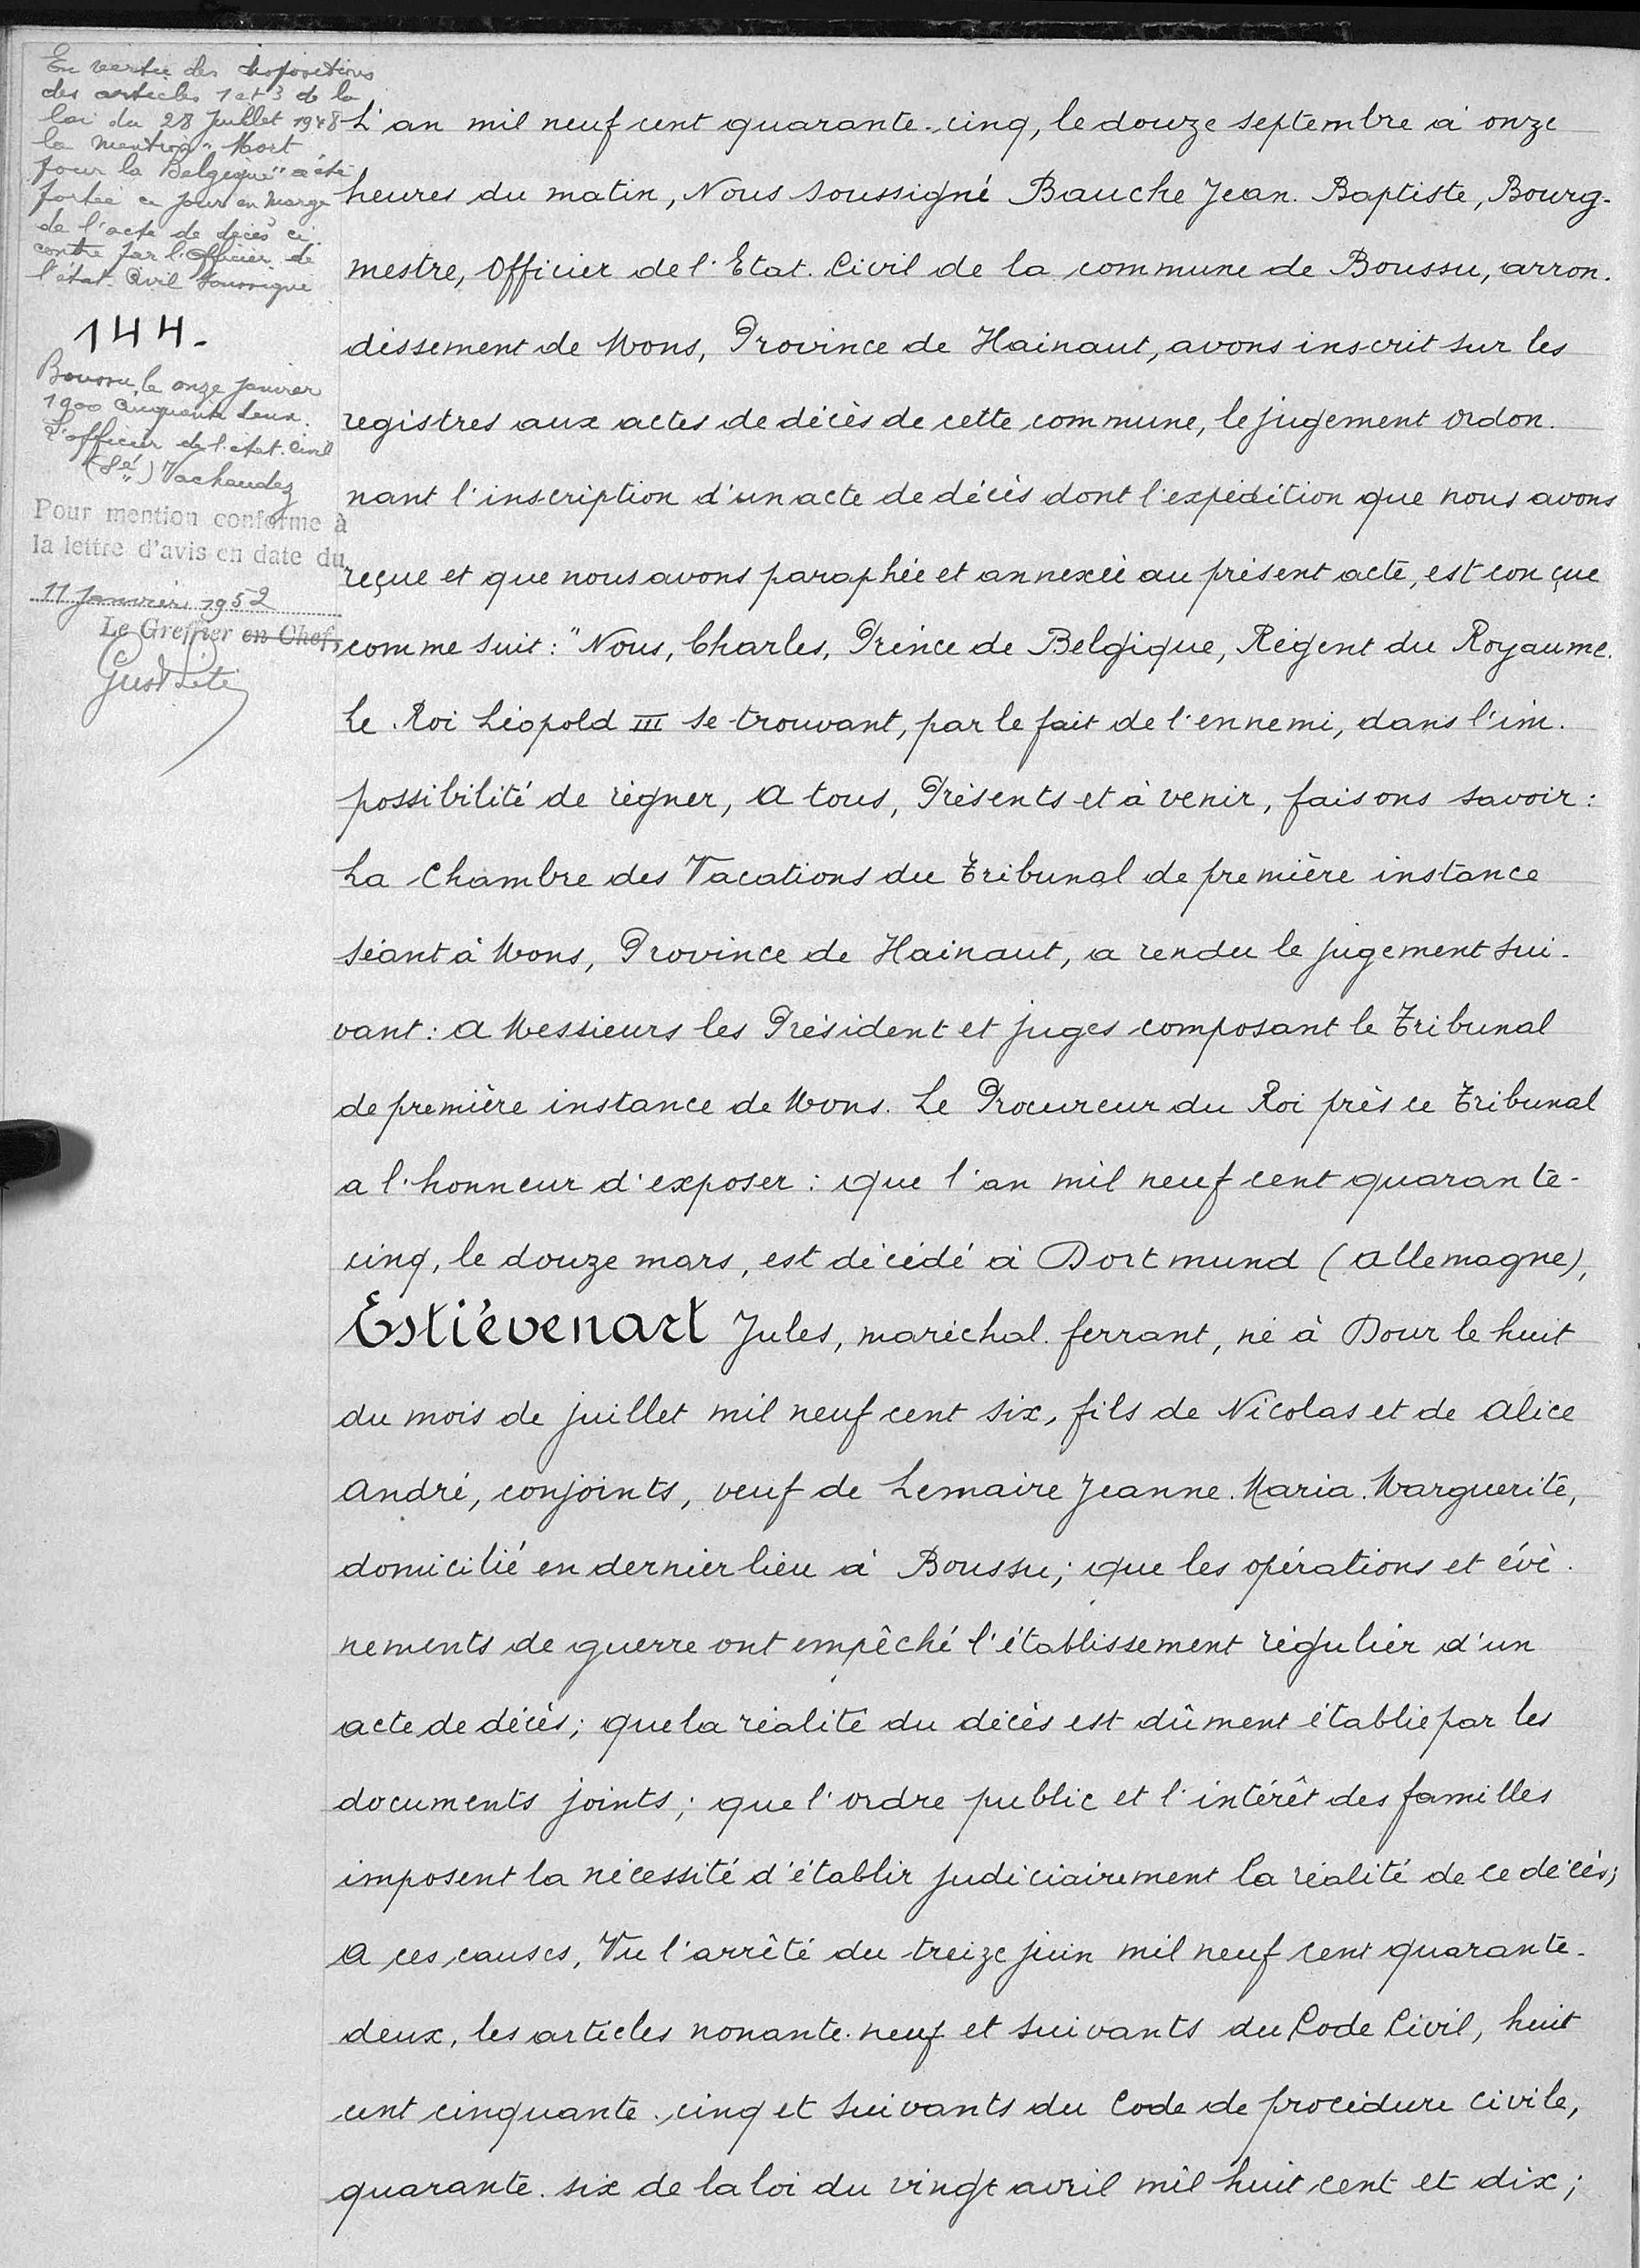 En vertu des dispositions
des articles 1 et 3 de la
loi du 28 Juillet 1948
la mention "Mort
pour la Belgique" a été
portée ce jour en marge
de l'acte de décès ci-
contre par l'Officier de
l'état-Civil soussigné
144.
Boussu, le onze janvier
1900 cinquante deux.
L'officier de l'état-Civil
(Sé) Vachaudez
Pour mention conforme à
la lettre d'avis en date du
11 Janvier 1952
Le Greffier en Chef,
L'an mil neuf cent quarante-cinq, le douze septembre à onze
heures du matin, Nous soussigné Bauche Jean-Baptiste, Bourg-
mestre, Officier de l'Etat-Civil de la commune de Boussu, arron-
dissement de Mons, Province de Hainaut, avons inscrit sur les
registres aux actes de décès de cette commune, le jugement ordon-
nant l'inscription d'un acte de décès dont l'expédition que nous avons
reçue et que nous avons paraphée et annexée au présent acte, est conçue
comme suit: "Nous, Charles, Prince de Belgique, Régent du Royaume.
Le Roi Léopold III se trouvant, par le fait de l'ennemi, dans l'im-
possibilité de régner, A tous, Présents et à venir, faisons savoir:
La Chambre des Vacations du Tribunal de première instance
séant à Mons, Province de Hainaut, a rendu le jugement sui-
vant: A Messieurs les Président et juges composant le Tribunal
de première instance de Mons. Le Procureur du Roi près ce Tribunal
a l'honneur d'exposer: que l'an mil neuf cent quarante-
cinq, le douze mars, est décédé à Dortmund (Allemagne),
Estiévenart Jules, maréchal-ferrant, né à Dour le huit
du mois de juillet mil neuf cent six, fils de Nicolas et de Alice
André, conjoints, veuf de Lemaire Jeanne-Maria-Marguerite,
domicilié en dernier lieu à Boussu; que les opérations et évè-
nements de guerre ont empêché l'établissement régulier d'un
acte de décès; que la réalité du décès est dûment établie par les
documents joints; que l'ordre public et l'intérêt des familles
imposent la nécessité d'établir judiciairement la réalité de ce décès;
A ces causes, Vu l'arrêté du treize juin mil neuf cent quarante-
deux, les articles nonante-neuf et suivants du Code Civil, huit
cent cinquante-cinq et suivants du Code de procédure civile,
quarante-six de la loi du vingt avril mil huit cent et dix;